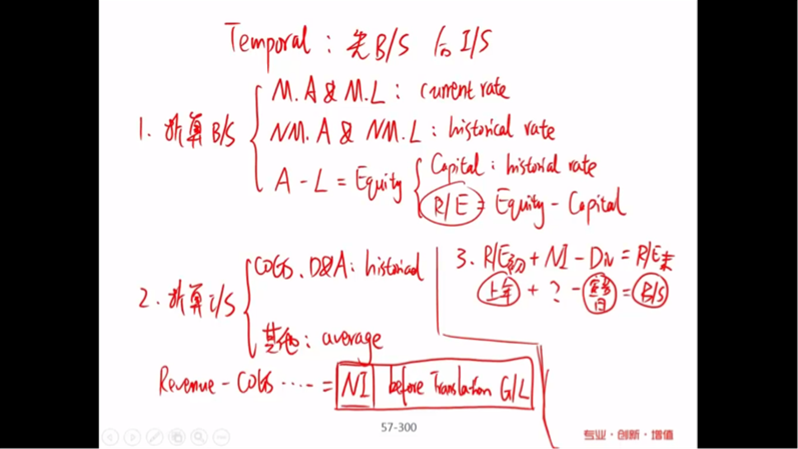 Temporal : 先B/S 后I/S
M.A & M.L : current rate
1. 折算B/S
NM.A & NM.L : historical rate
A - L = Equity
Capital : historial rate
R/E = Equity - Capital
COGS、D&A : historical
2. 折算I/S
其他 : average
Revenue - COGS ····· = NI before Translation G/L
3. R/E初 + NI - Div = R/E末
上年 + ? - 宣告日 = B/S
57-300
专业·创新·增值